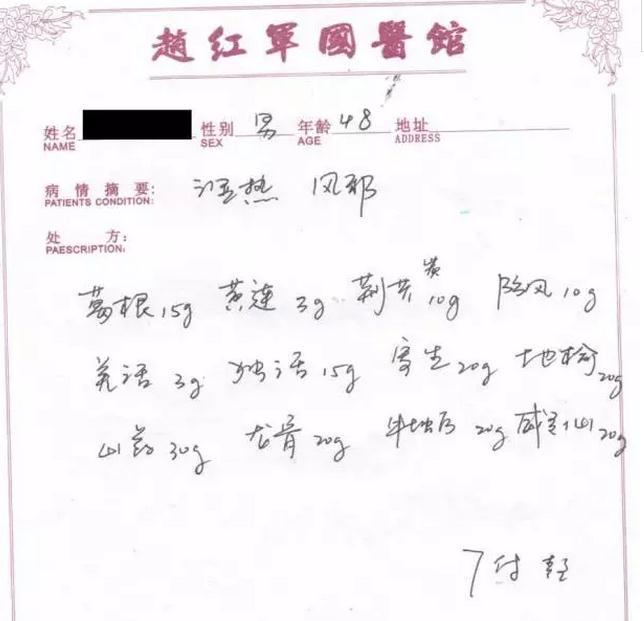 趙红軍國醫館
姓名 性别 男 年龄 48 地址
NAME SEX AGE ADDRESS
病情摘要: 湿热 风邪
PATIENTS CONDITION:
处方:
PAESCRIPTION:
炭
葛根15g 黄连3g 荆芥10g 防风10g
羌活3g 独活15g 寄生20g 地榆20g
山药30g 龙骨20g 20g 威灵仙20g
7付